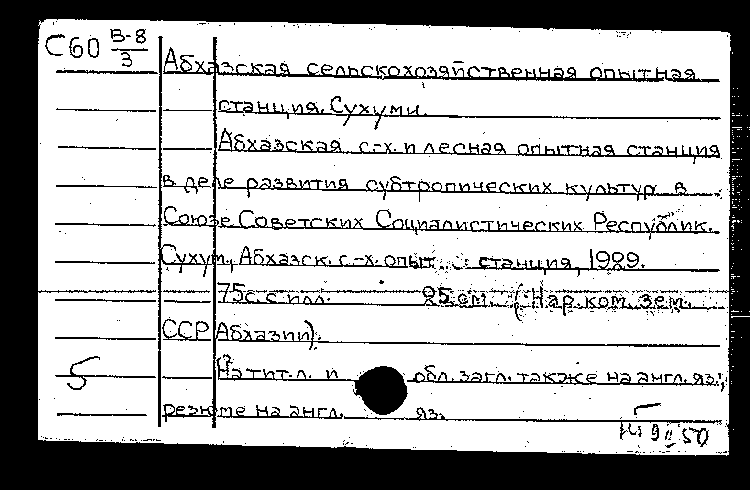 С60 В-8/3
Абхазская сельскохозяйственная опытная
станция. Сухуми.
Абхазская с.-х. и лесная опытная станция
в деле развития субтропических культур в
Союзе Советских Социалистических Республик.
Сухум, Абхазск. с.-х. опыт. станция, 1929.
75с. с илл. 25 см. (Нар. ком. зем.
ССР Абхазии).
На тит. л. и обл. загл. также на англ. яз.;
5
резюме на англ. яз.
9 II 50